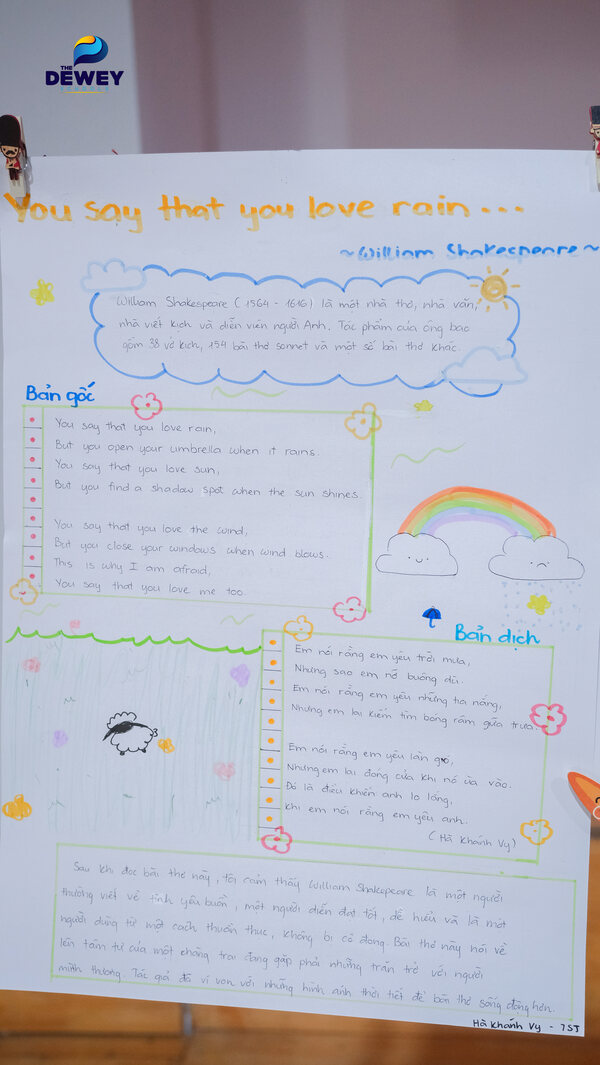 THE
DEWEY
SCHOOLS
You say that you love rain...
~William Shakespeare~
William Shakespeare (1564 - 1616) là một nhà thơ, nhà văn,
nhà viết kịch và diễn viên người Anh. Tác phẩm của ông bao
gồm 38 vở kịch, 154 bài thơ sonnet và một số bài thơ khác.
Bản gốc
You say that you love rain,
But you open your umbrella when it rains.
You say that you love sun,
But you find a shadow spot when the sun shines.
You say that you love the wind,
But you close your windows when wind blows.
This is why I am afraid,
You say that you love me too.
Bản dịch
Em nói rằng em yêu trời mưa,
Nhưng sao em nỡ buông dù.
Em nói rằng em yêu những tia nắng,
Nhưng em lại kiếm tìm bóng râm giữa trưa.
Em nói rằng em yêu làn gió,
Nhưng em lại đóng cửa khi nó ùa vào.
Đó là điều khiến anh lo lắng,
Khi em nói rằng em yêu anh.
(Hà Khánh Vy)
Sau khi đọc bài thơ này, tôi cảm thấy William Shakepeare là một người
thường viết về tình yêu buồn, một người diễn đạt tốt, dễ hiểu và là một
người dùng từ một cách thuần thục, không bị cô đọng. Bài thơ này nói về
lên tâm tư của một chàng trai đang gặp phải những trăn trở với người
mình thương. Tác giả đã ví von với những hình ảnh thời tiết để bản thơ sống động hơn.
Hà Khánh Vy - 7SJ